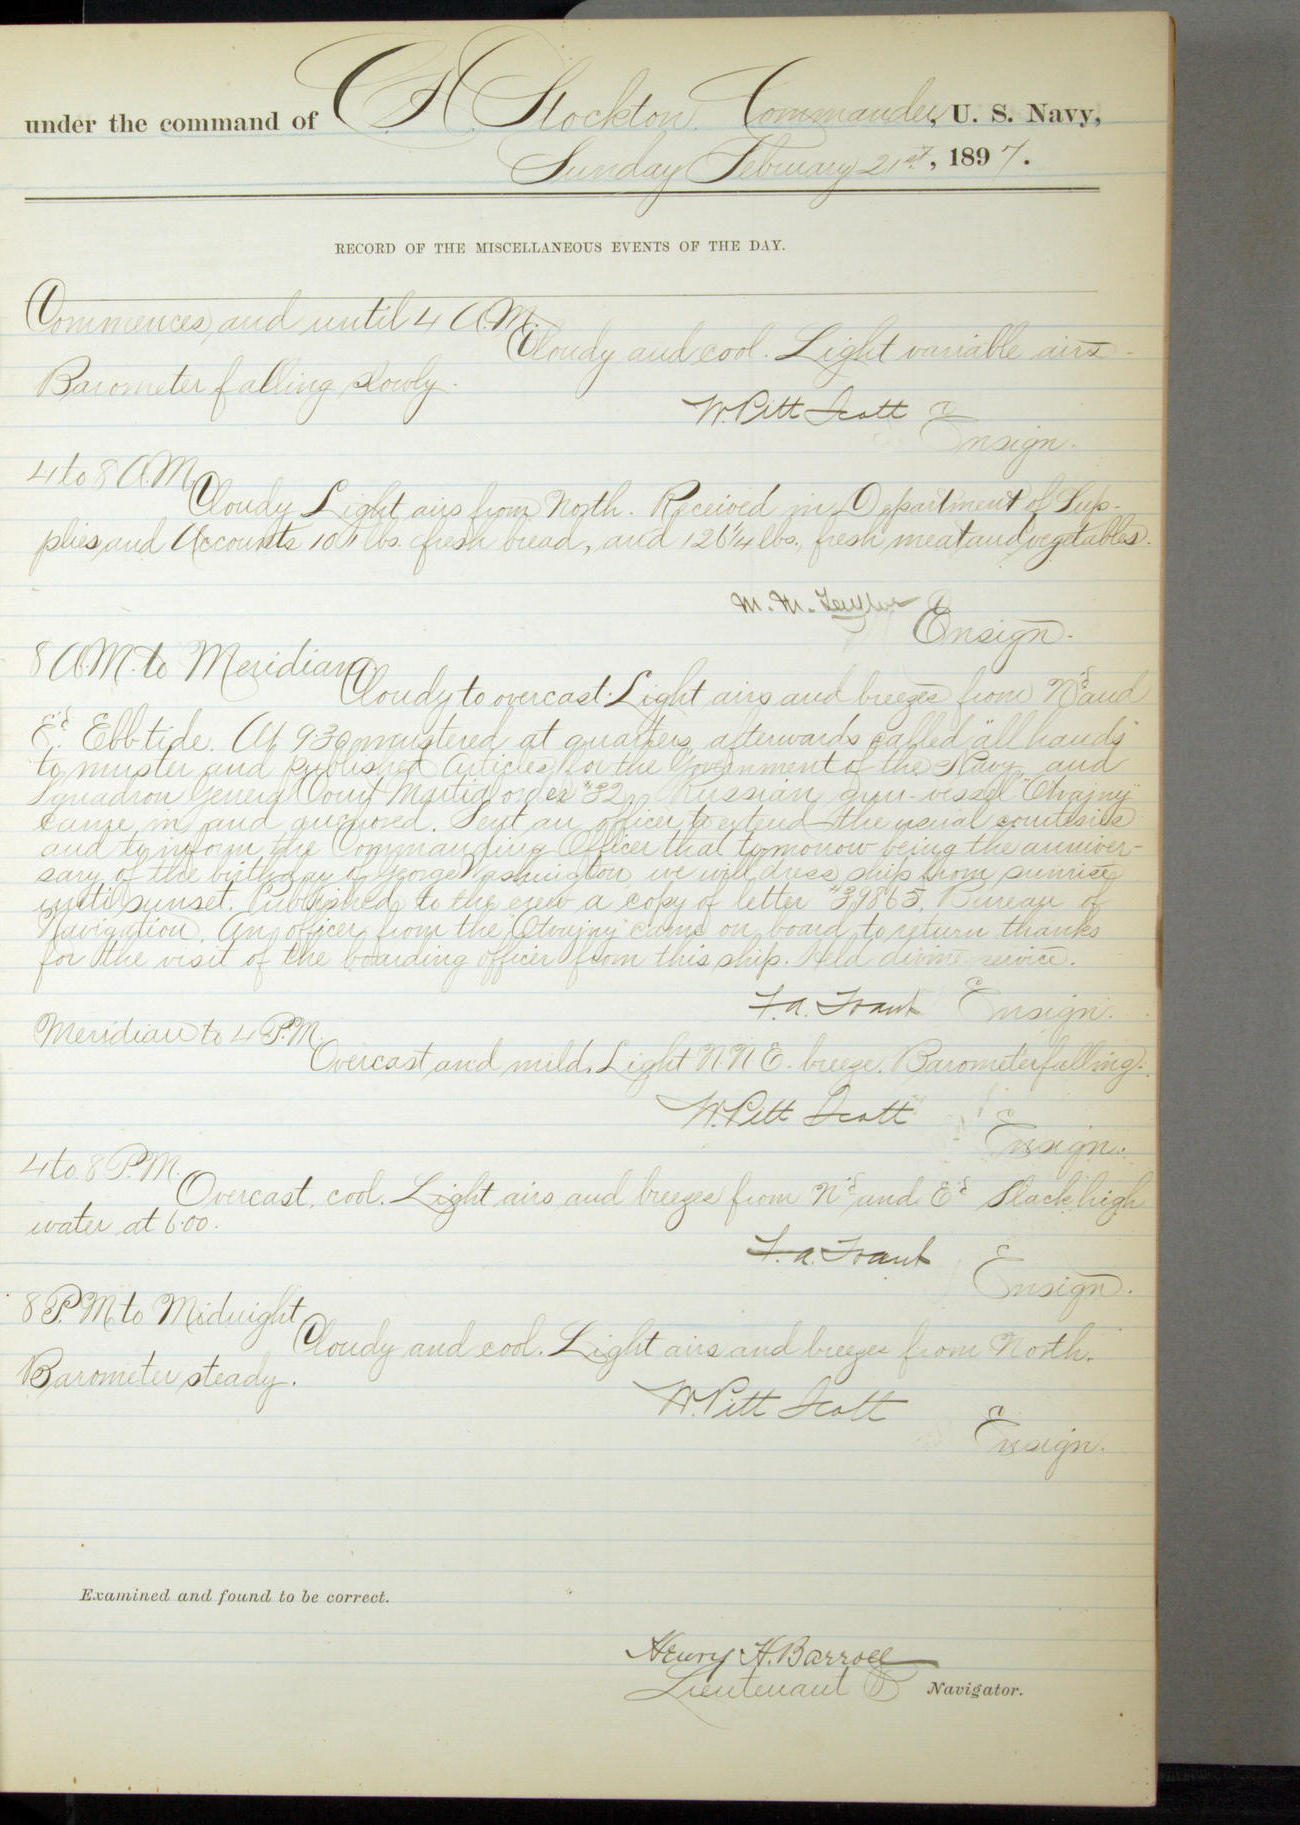 under the command of C. H. Stockton. Commander, U. S. Navy,
Sunday February 21st, 1897.
RECORD OF THE MISCELLANEOUS EVENTS OF THE DAY.
Commences, and until 4 A.M.
Cloudy and cool. Light variable airs.
Barometer falling slowly.
W. Pitt Scott
Ensign.
4 to 8 A.M.
Cloudy Light airs from North. Received in Department of Sup-
plies and Accounts 101 lbs. fresh bread, and 126 1/4 lbs., fresh meat and vegetables.
M. M. Taylor
Ensign.
8 A.M. to Meridian.
Cloudy to overcast. Light airs and breezes from N'd and
E'd. Ebb tide. At 9.30 mustered at quarters, afterwards called "all hands"
to muster and published Articles for the Government of the Navy, and
Squadron General Court Martial order #32. Russian gun-vessel "Otvajny"
came in and anchored. Sent an officer to extend the usual courtesies
and to inform the Commanding Officer that tomorrow being the anniver-
sary of the birthday of George Washington, we will dress ship from sunrise
until sunset. Published to the crew a copy of letter #39865, Bureau of
Navigation. An officer from the "Otvajny" came on board to return thanks
for the visit of the boarding officer from this ship. Held divine service.
F. A. Traut Ensign.
Meridian to 4 P.M.
Overcast and mild. Light N N E. breeze. Barometer falling.
W. Pitt Scott
Ensign.
4 to 8 P.M.
Overcast, cool. Light airs and breezes from N'd and E'd Slack high
water at 6.00.
F. A. Traut
Ensign.
8 P.M. to Midnight
Cloudy and cool. Light airs and breezes from North.
Barometer steady.
W. Pitt Scott
Ensign.
Examined and found to be correct.
Henry H. Barroll
Lieutenant Navigator.